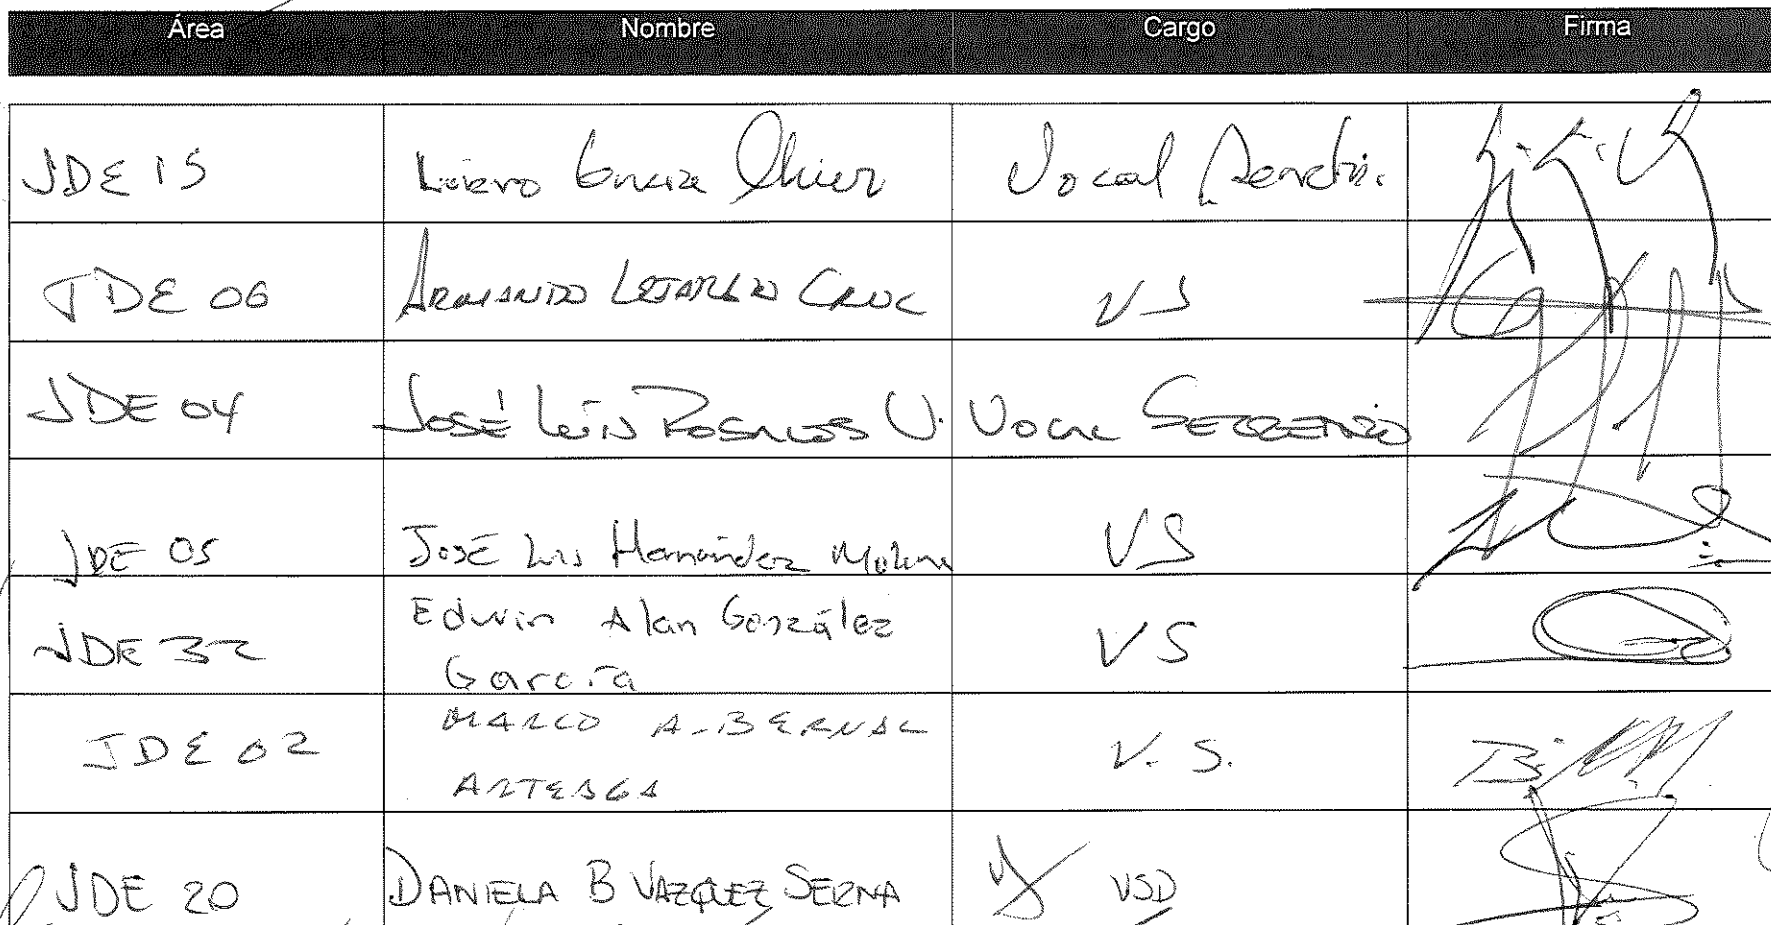 Área Nombre Cargo Firma
JDE 15 García Vocal
JDE 06 ARMANDO CRUZ VS
JDE 04 JOSÉ LUIS ROSALES V. VOCAL SECRETARIO
JDE 05 JOSÉ LUIS Hernández Molina VS
JDE 32 Edwin Alan González VS
García
JDE 02 MARCO A. BERNAL V. S.
ARTEAGA
JDE 20 DANIELA B VAZQUEZ SERNA VSD